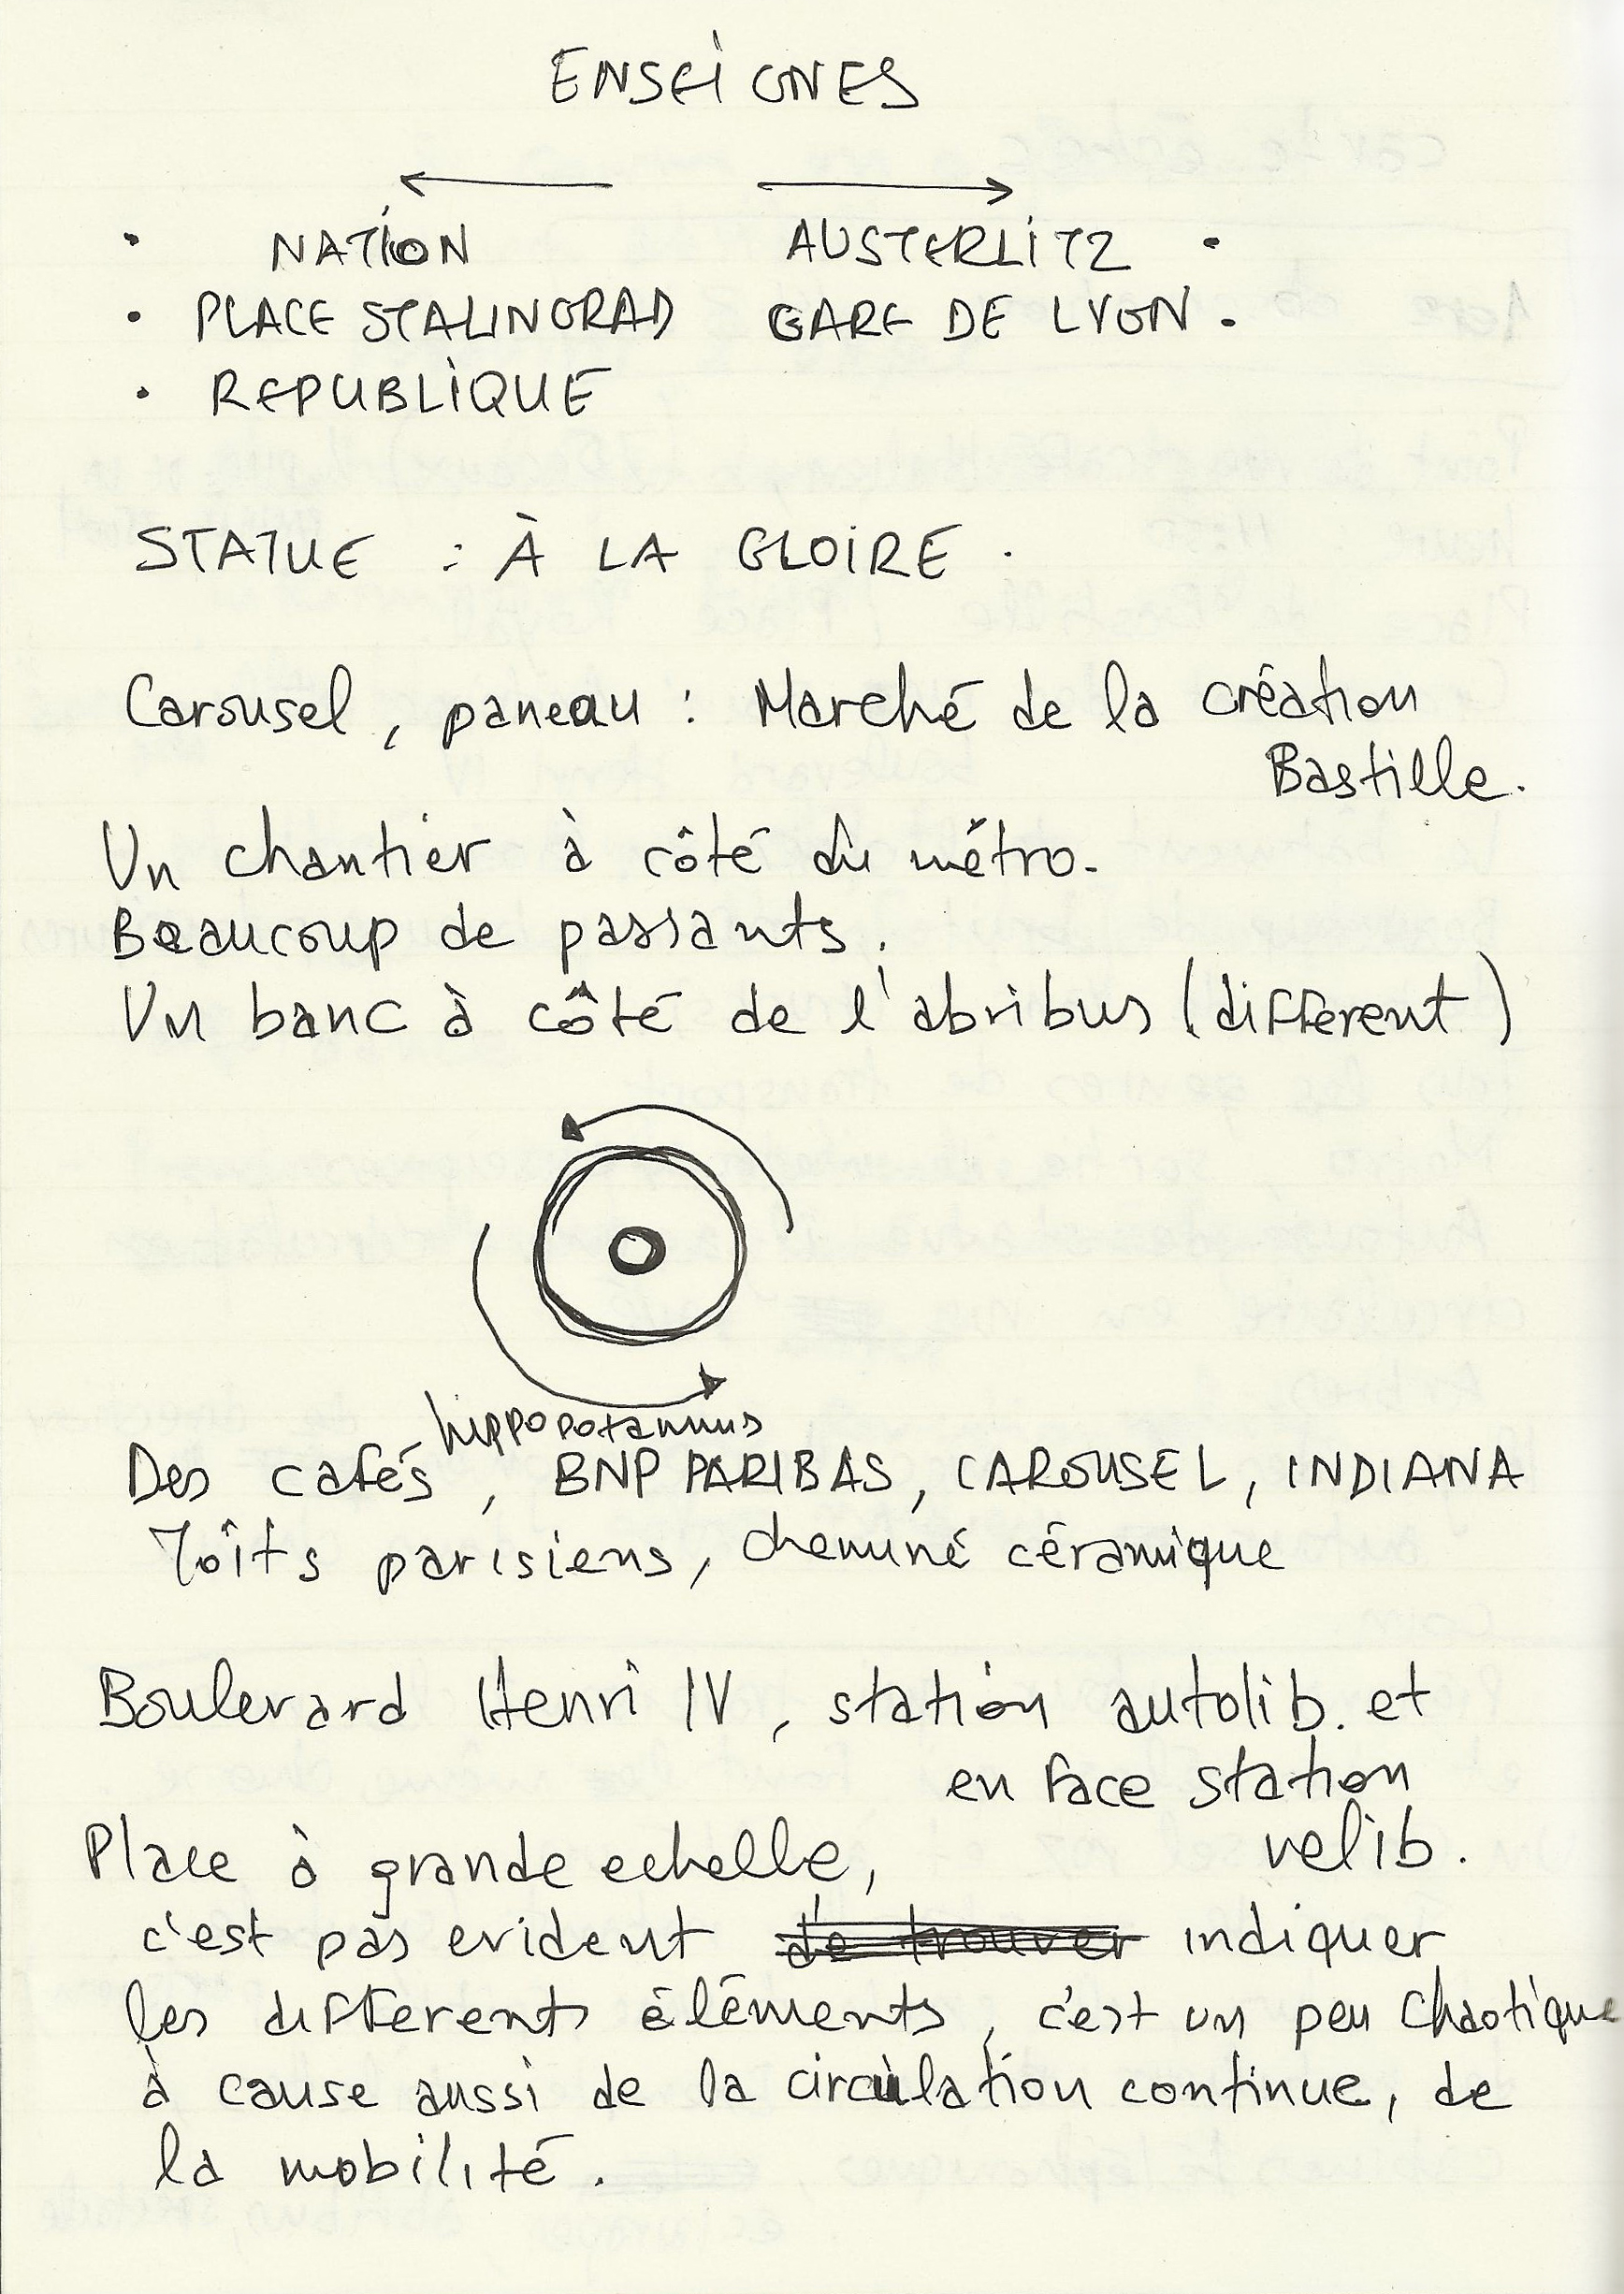 ENSEIGNES
NATION AUSTERLITZ
PLACE STALINGRAD GARE DE LYON.
REPUBLIQUE
STATUE : À LA GLOIRE.
Carousel, paneau : Marché de la création
Bastille.
Un chantier à côté du métro.
Beaucoup de passants.
Un banc à côté de l'abribus (différent)
hippopotamus
Des cafés, BNP PARIBAS, CAROUSEL, INDIANA
Toîts parisiens, cheminé céramique
Boulevard Henri IV, station autolib. et
en face station
velib.
Place à grande echelle,
c'est pas evident de trouver indiquer
les differents éléments, c'est un peu chaotique
à cause aussi de la circulation continue, de
la mobilité.